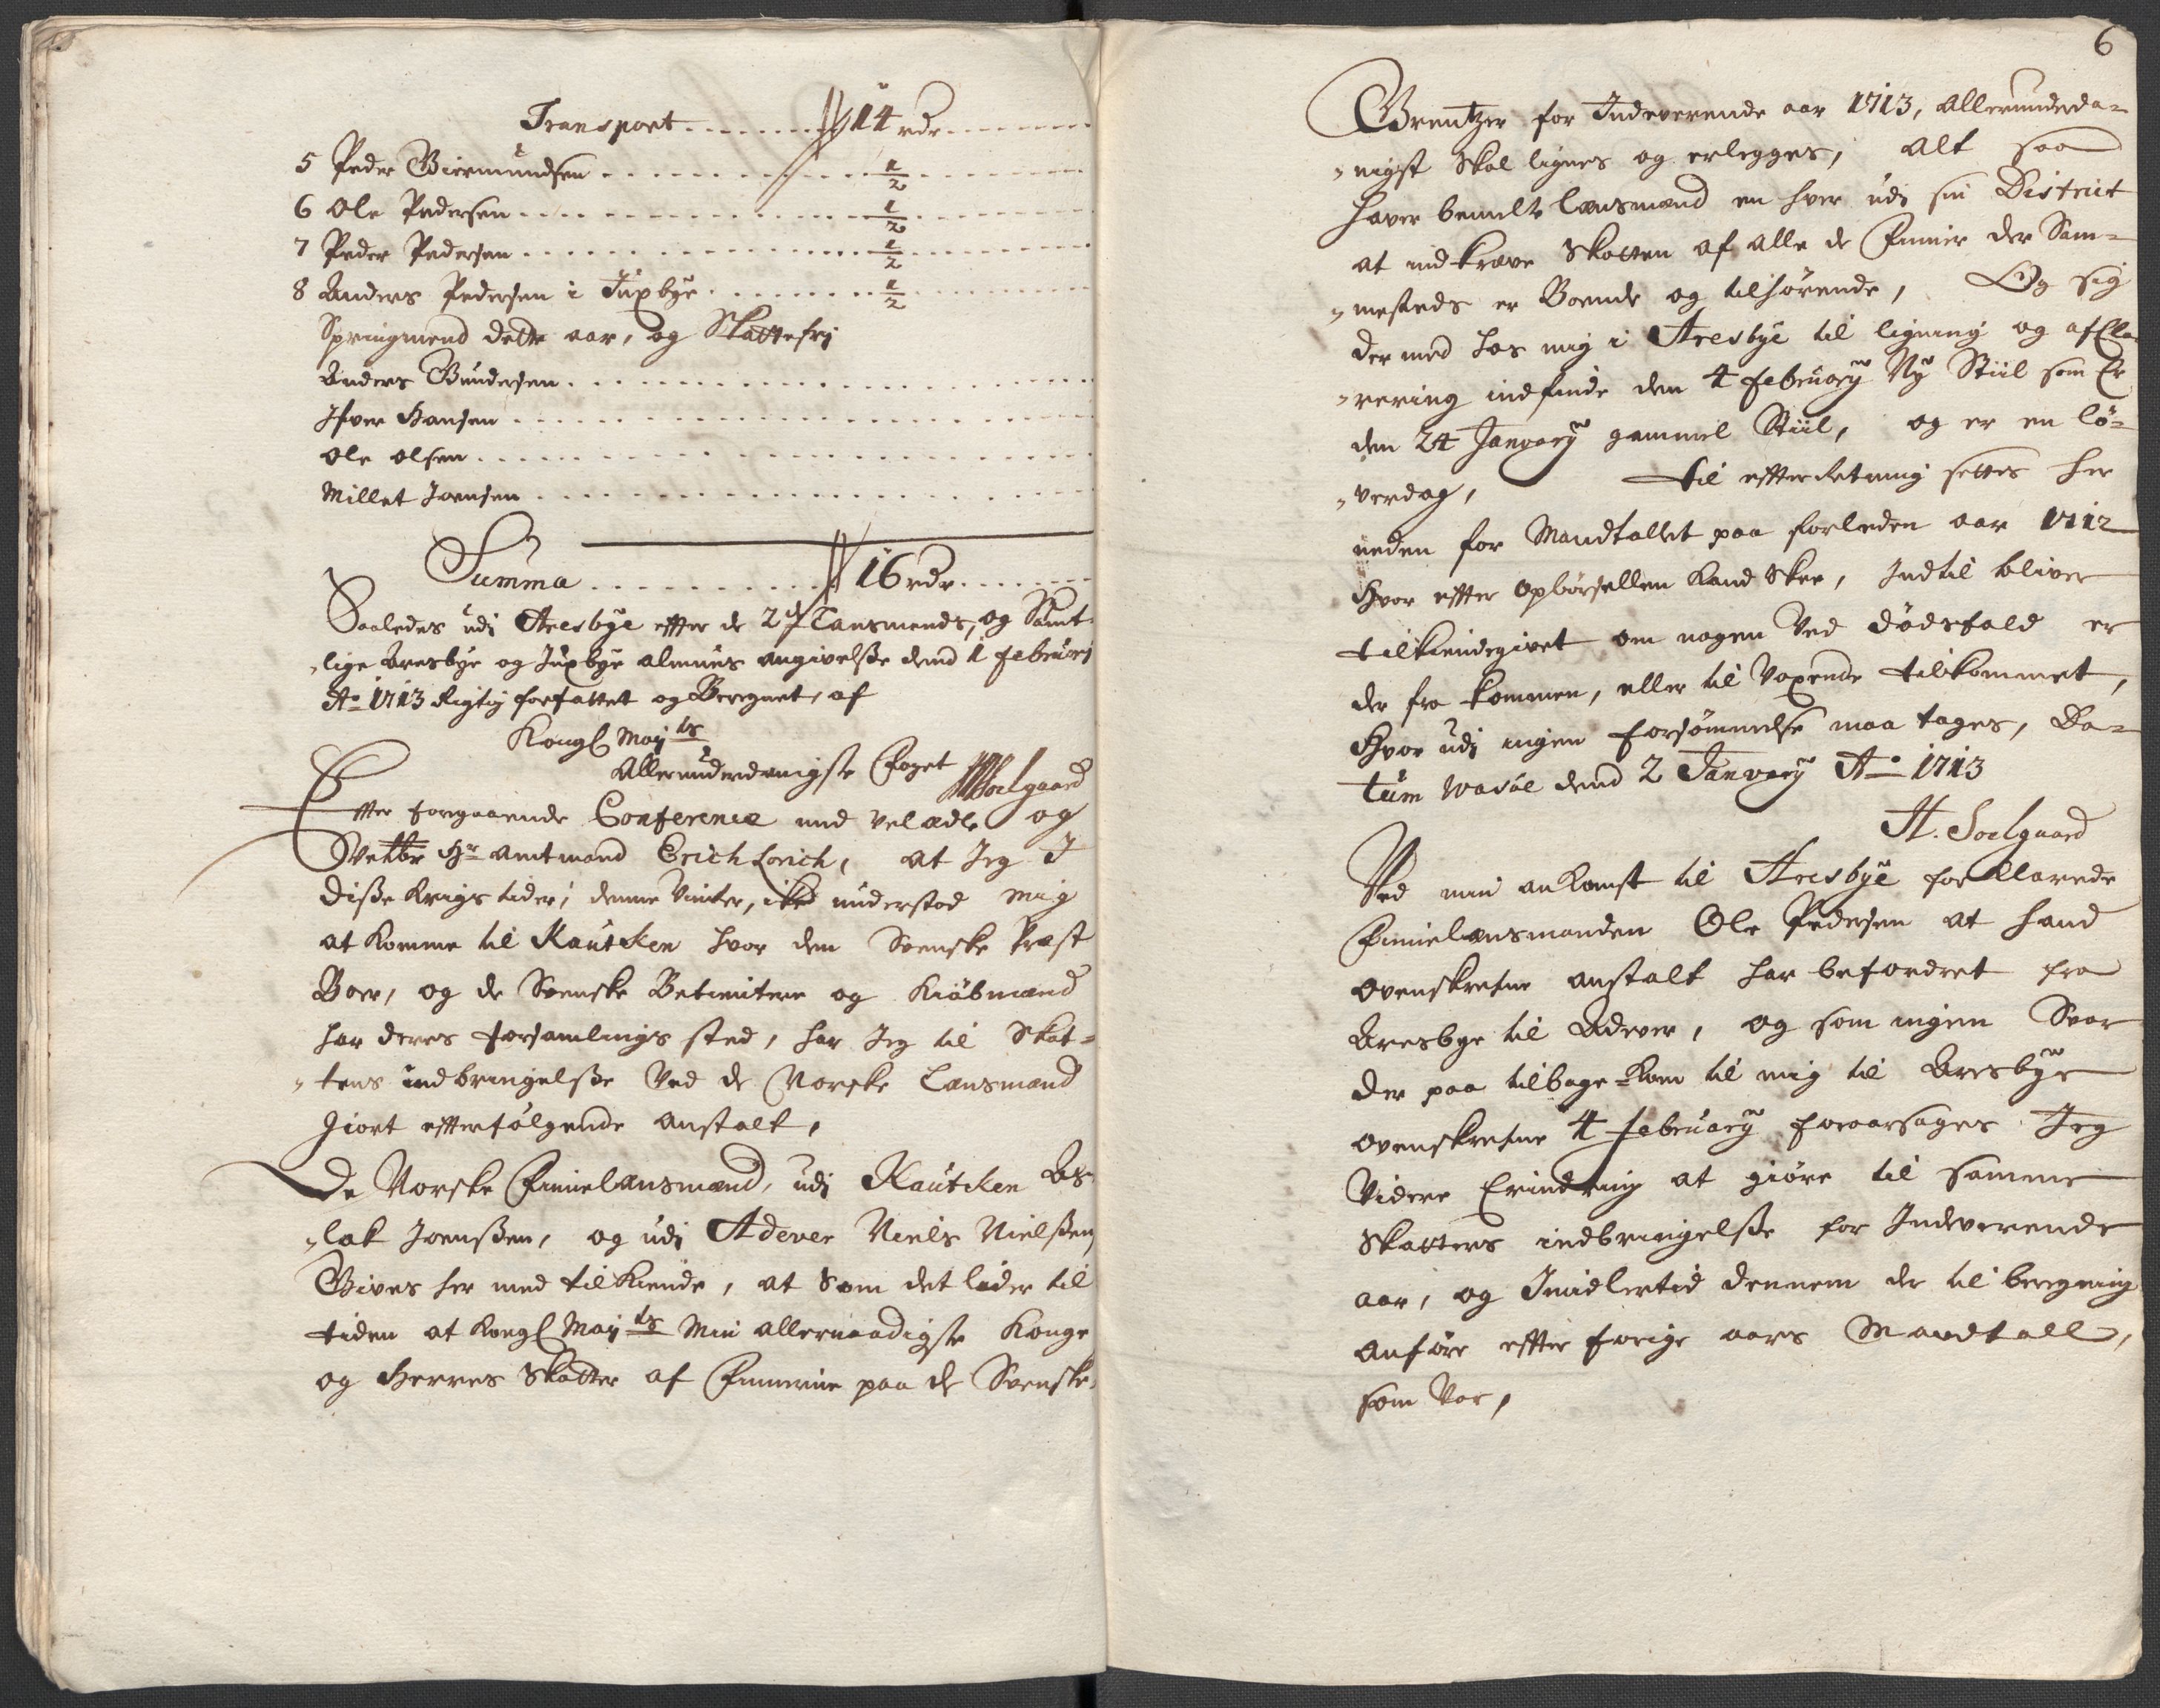 Transport 14 rdr
5 Peder Giermundsen 1/2
6 Ole Pedersen 1/2
7 Peder Pedersen 1/2
8 Anders Pedersen i Juxbye 1/2
Springmend dette aar, og Skattefrj
Anders Gundersen
Ifver Hansen
Ole Olsen
Millet Joensen
Summa 16 rdr
Saaledes udj Aresbye efter de 2de Lænsmends, og Samt-
-lige Aresbye og Juxbye almues angivelsse dend 1 Februarj
Ao 1713 Rigtig forfattet og Beregnet, af
Kongl May ts
Allerunderdanigste Foget Soelgaard
Efter forgaaende Conference med velædle og
Velbr Hr amtmand Erich Lorich, at Jeg I
disse Krigs tider, denne Vinter, icke understod mig
at komme til Kautcken hvor den Svenske Præst
Boer, og de Svenske Betientere og Kiøbmænd
har deres forsamlings sted, har Jeg til Skat-
-tens indbringelsse Ved de Norske Lænsmænd
giort effterfølgende anstalt,
De Norske Finnelænsmænd, udj Kautcken As-
-lak Joenssen, og udj Adever Niels Nielssen
Gives her med tilkiende, at Som det lider til
tiden at Kongl May ts Min allernaadigste Konge
og Herres Skatter af Finnerne paa de Svenske
6
Grentzer for Indeverende aar 1713, allerunderda-
-nigst skal lignes og erlegges, alt saa
haver bemelte lænsmænd en hver udj sin District
at indkræve Skatten af alle de Finner der Sam-
-mesteds er Boende og tilhørende, Og sig
der med hos mig i Aresbye til ligning og afKla-
-rering indfinde den 4 February Ny Stiil som Er
den 24 January gammel Stiil, og er en lø-
-verdag, til effterretning settes her
neden for Mandtallet paa forleden aar 1712
Hvor effter opbørsellen Kand Skee, Indtil bliver
tilkiendegivet om nogen Ved dødsfald er
der fra kommen, eller til Voxende tilkommet,
Hvor udj ingen forsømmelse maa tages, Da-
tum Wasøe dend 2 January Ao 1713
H. Soelgaard
Ved min ankomst til Aresbye forklarede
Finnelænsmanden Ole Pedersen at hand
ovenskrefne anstalt har befordret fra
Aresbye til Adever, og som ingen Svar
der paa tilbage-kom til mig til Aresbye
ovenskrefne 4 February foraarsages Jeg
Videre Erindring at giøre til samme
Skatters indbringelsse for Indeverende
aar, og Imidlertid dennem der til beregning
anføre effter forige aars Mandtall,
som Var,